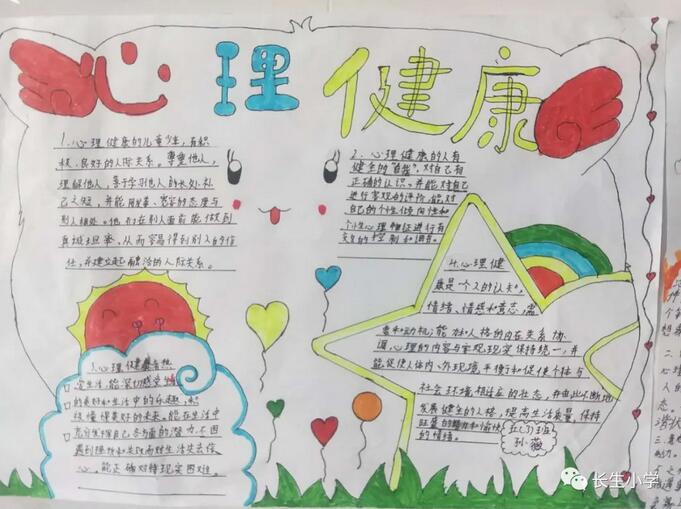 心理健康
1.心理健康的儿童少年,有积
极、良好的人际关系。尊重他人,
理解他人,善于学习他人的长处补
己之短,并能用友善、宽容的态度与
别人相处。他们在别人面前能做到
真诚坦率,从而容易得到别人的信
任,并建立起融洽的人际关系。
2.心理健康的人有
健全的“自我”,对自己有
正确的认识,并能对自己
进行客观的评价,能对
自己的个性倾向性和
个性心理特征进行有
效的控制和调节。
心理健康
定生活,能深切感受
的美好和生活中的乐趣,积
极憧憬美好的未来。能在生活中
充分发挥自己各方面的潜力,不因
遇到挫折和失败而对生活失去信
心。能正确对待现实困难。
4.心理健
康是个人的认知、
情绪、情感和意志、需
要和动机、能力和人格的内在关系协
调,心理的内容与客观现实保持统一,并
能促使人体内、外环境平衡和促使个体与
社会环境相适应的状态,并由此不断地
发展健全的人格,提高生活质量,保持
旺盛的精力和愉快
的情绪。
五(1)班
孙薇
长生小学